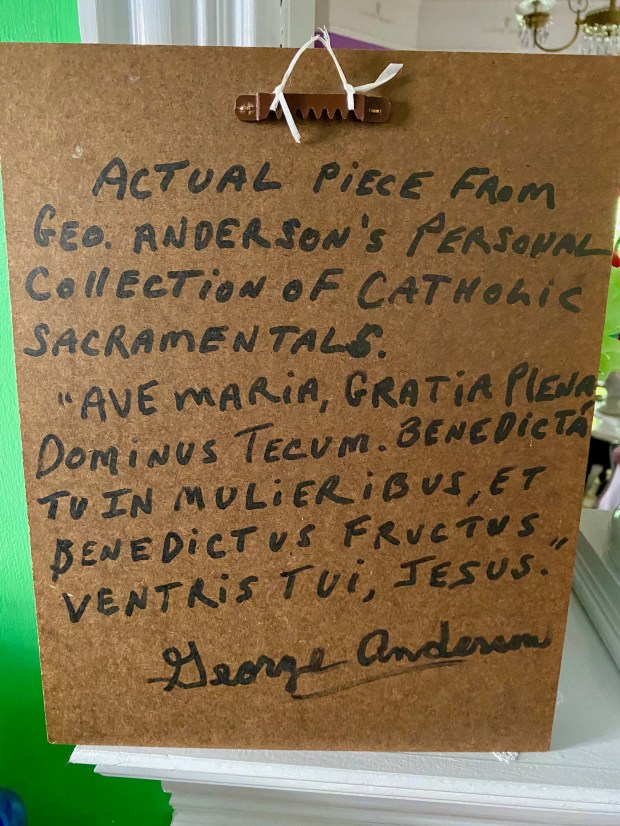 ACTUAL PIECE FROM
GEO. ANDERSON'S PERSONAL
COLLECTION OF CATHOLIC
SACRAMENTALS.
"AVE MARIA, GRATIA PLENA
DOMINUS TECUM. BENEDICTA
TU IN MULIERIBUS, ET
BENEDICTUS FRUCTUS
VENTRIS TUI, JESUS."
George Anderson